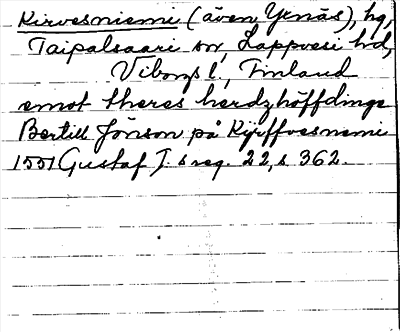 Kirvesniemi (även Yxnäs), hg,
Taipalsaari sn, Lappvesi hd,
Viborgs l, Finland
emot theres herdzhöffdinge
Bertill Jönson på Kijrffvesnemi
1551 Gustaf I. s reg. 22, s. 362.